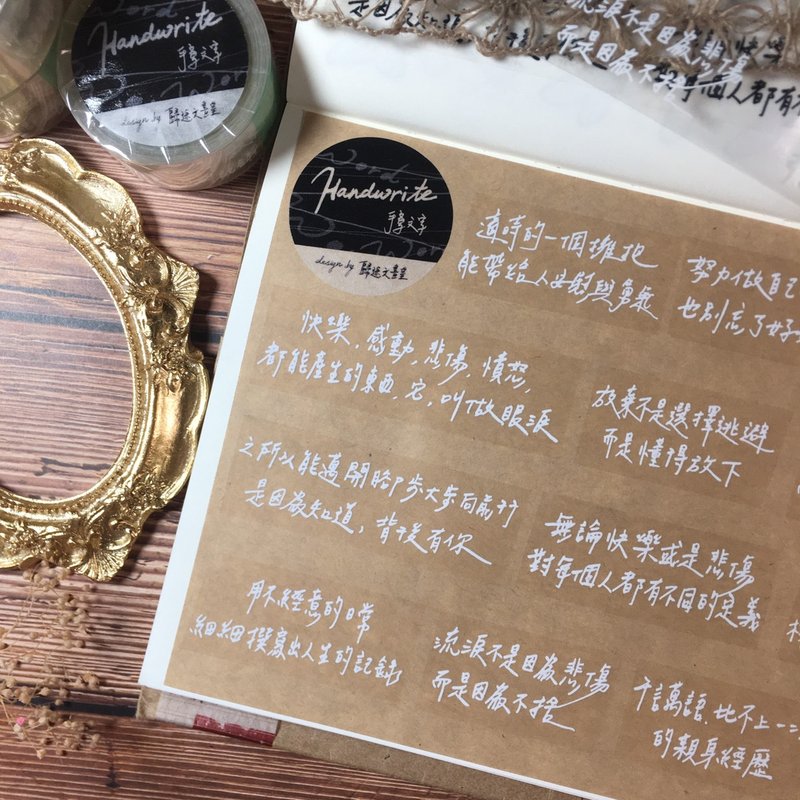 Handwrite
手寫文字
design by 歸途文書皇
流淚不是因為悲傷
而是因為不捨
快樂
每個人都有
Word
Handwrite
手寫文字
design by 歸途文書皇
適時的一個擁抱
能帶給人安慰與勇氣
努力做自己
也別忘了好
快樂,感動,悲傷,憤怒,
都能產生的東西,它,叫做眼淚
放棄不是選擇逃避
而是懂得放下
之所以能邁開腳步大步向前行
是因為知道,背後有你
無論快樂或是悲傷
對每個人都有不同的定義
用不經意的日常
細細撰寫出人生的記錄
流淚不是因為悲傷
而是因為不捨
千言萬語,比不上一次
的親身經歷